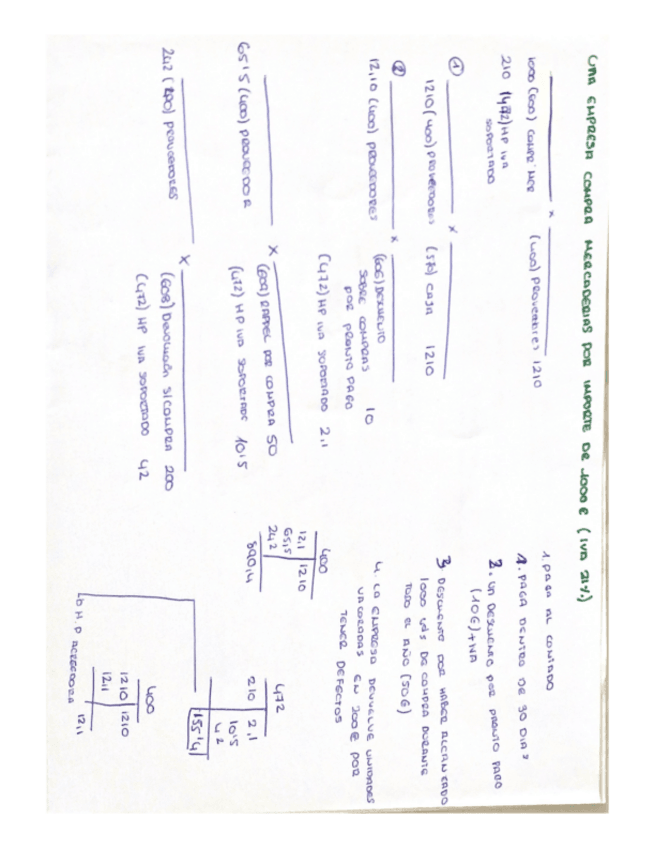 UNA EMPRESA COMPRA MERCADERIAS POR IMPORTE DE 1000 € (IVA 21%)
1000 (600) COMPR MER
x
(400) Proveedores 1210
210 (472) HP IVA
SOPORTADO
1
1210 (400) PROVEEDORES
x
(570) CAJA 1210
2
12,10 (400) PROVEEDORES
x
(606) DESCUENTO
SOBRE COMPRAS 10
POR PRONTO PAGO
(472) HP IVA SOPORTADO 2,1
65'5 (400) PROVEEDOR
x
(609) RAPPEL POR COMPRA 50
(472) HP IVA SOPORTADO 10'5
242 (400) PROVEEDORES
x
(608) DEVOLUCION S/COMPRA 200
(472) HP IVA SOPORTADO 42
1. PAGA AL CONTADO
1. PAGA DENTRO DE 30 DIAS
2. UN DESCUENTO POR PRONTO PAGO
(10€) + IVA
3 DESCUENTO POR HABER ALCANZADO
1000 UDS DE COMPRA DURANTE
TODO EL AÑO (50€)
4. LA EMPRESA DEVUELVE UNIDADES
VALORADAS EN 200€ POR
TENER DEFECTOS
400
12,1 1210
65,5
242
890,4
472
210 2,1
10'5
42
155'4
H.P ACREEDORA
400
1210 1210
12,1
12,1